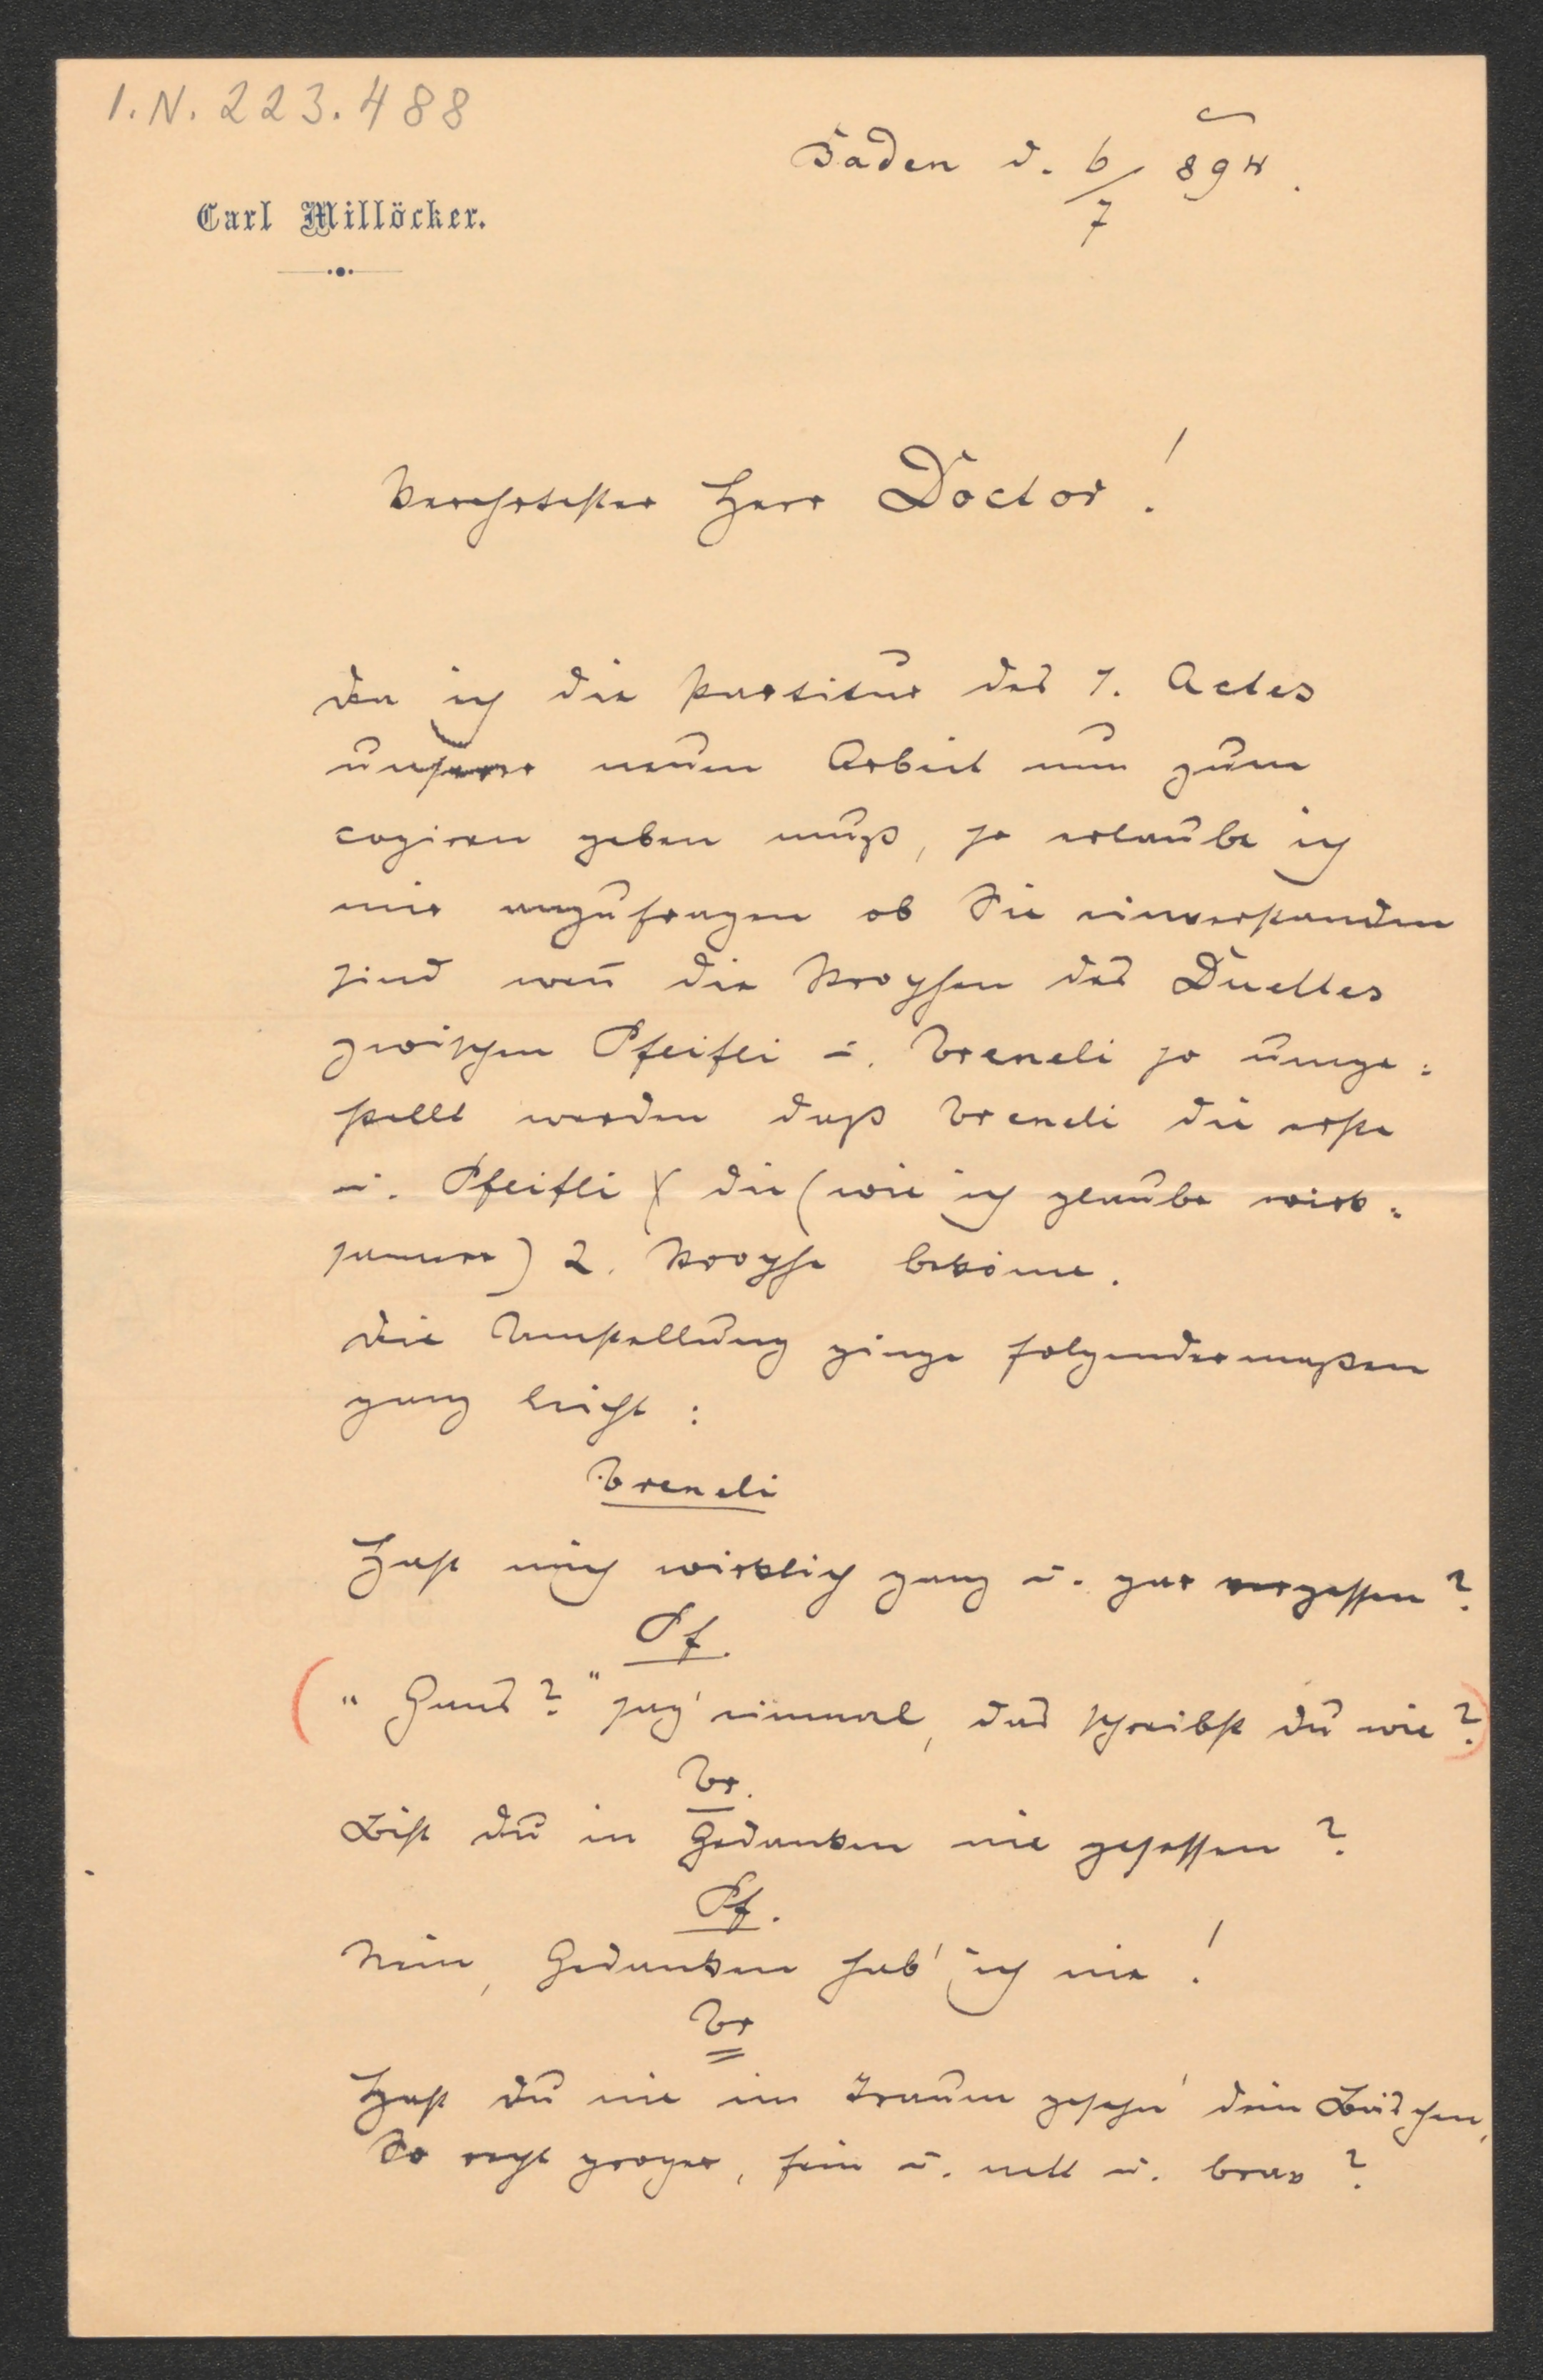 I.N. 223.488
Baden d. 6/7 894.
Carl Millöcker.
Verehrtester Herr Doctor!
Da ich die Partitur des 1. Actes
unserer neuen Arbeit nun zum
copiren geben muß, so erlaube ich
mir anzufragen ob Sie einverstanden
sind weñ die Strophen des Duettes
zwischen Pfeifli u. Vreneli so umge:
stellt werden daß Vreneli die erste
u. Pfeifli die (wie ich glaube wirk:
samere) 2. Strophe bekom̄e.
Die Umstellung ginge folgendermaßen
ganz leicht:
Vreneli
Hast mich wirklich ganz u. gar vergessen?
Pf.
(„Gans?“ sag' einmal, das schreibst du wie?)
Vr.
Bist du in Gedanken nie gesessen?
Pf.
Nein, Gedanken hab' ich nie!
Vr
Hast du nie im Traum geseh'n dein Bäschen,
So recht proper, fein u. nett u. brav?